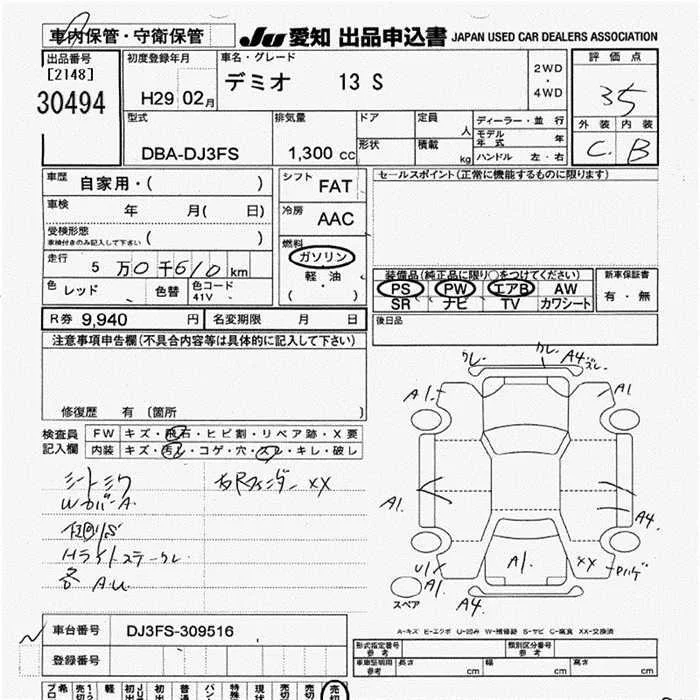 車内保管・守衛保管
JU 愛知 出品申込書 JAPAN USED CAR DEALERS ASSOCIATION
出品番号
[2148]
30494
初度登録年月
H29 02月
車名・グレード
デミオ 13 S
2WD
・
4WD
評価点
35
外装 内装
C. B
型式
DBA-DJ3FS
排気量
1,300 cc
ドア
形状
定員
人
積載
kg
ディーラー・並行
モデル年式 年
ハンドル 左・右
車歴 自家用・( )
車検 年 月( 日)
受検形態
車検付きのみ記入して下さい ( )
走行 5万0千610km
色 レッド 色替 色コード 41V
シフト FAT
冷房 AAC
燃料
ガソリン
軽・油
( )
セールスポイント(正常に機能するものに限ります)
装備品(純正品に限り○をつけてください)
PS PW エアB AW
SR ナビ TV カワシート
新車保証書
有・無
R券 9,940 円 名変期限 月 日
後日品
注意事項申告欄(不具合内容等は具体的に記入して下さい)
修復歴 有 〔箇所 〕
検査員記入欄
FW キズ・飛石・ヒビ割・リペア跡・X要
内装 キズ・汚レ・コゲ・穴・スレ・キレ・破レ
A4
A1.
A1
A1.
A4.
A1.
XX
U1
A1.
A4
スペア
右Rフィンダー XX
A-キズ E-エクボ U-凹み W-補修跡 S-サビ C-腐食 XX-交換済
車台番号 DJ3FS-309516
登録番号
形式指定番号 参考
類別区分番号 参考
車庫証明用 参考 長さ cm 幅 cm 高さ cm